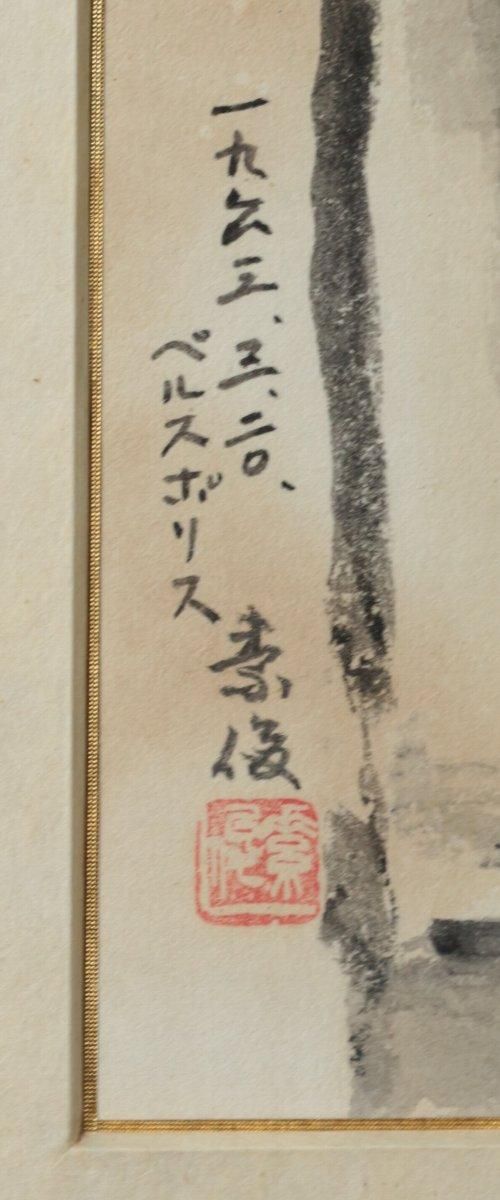 一九六三、三、二〇、
ペルスポリス
素俊